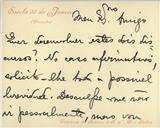 Escola 31 de Janeiro
Meu Exmo Amigo
Quer desenvolver estes dois dis-
cursos? No caso affirmativo,
solicito-lhe toda a possivel
brevidade. Desculpe-me não
ir pessoalmente, mas vou